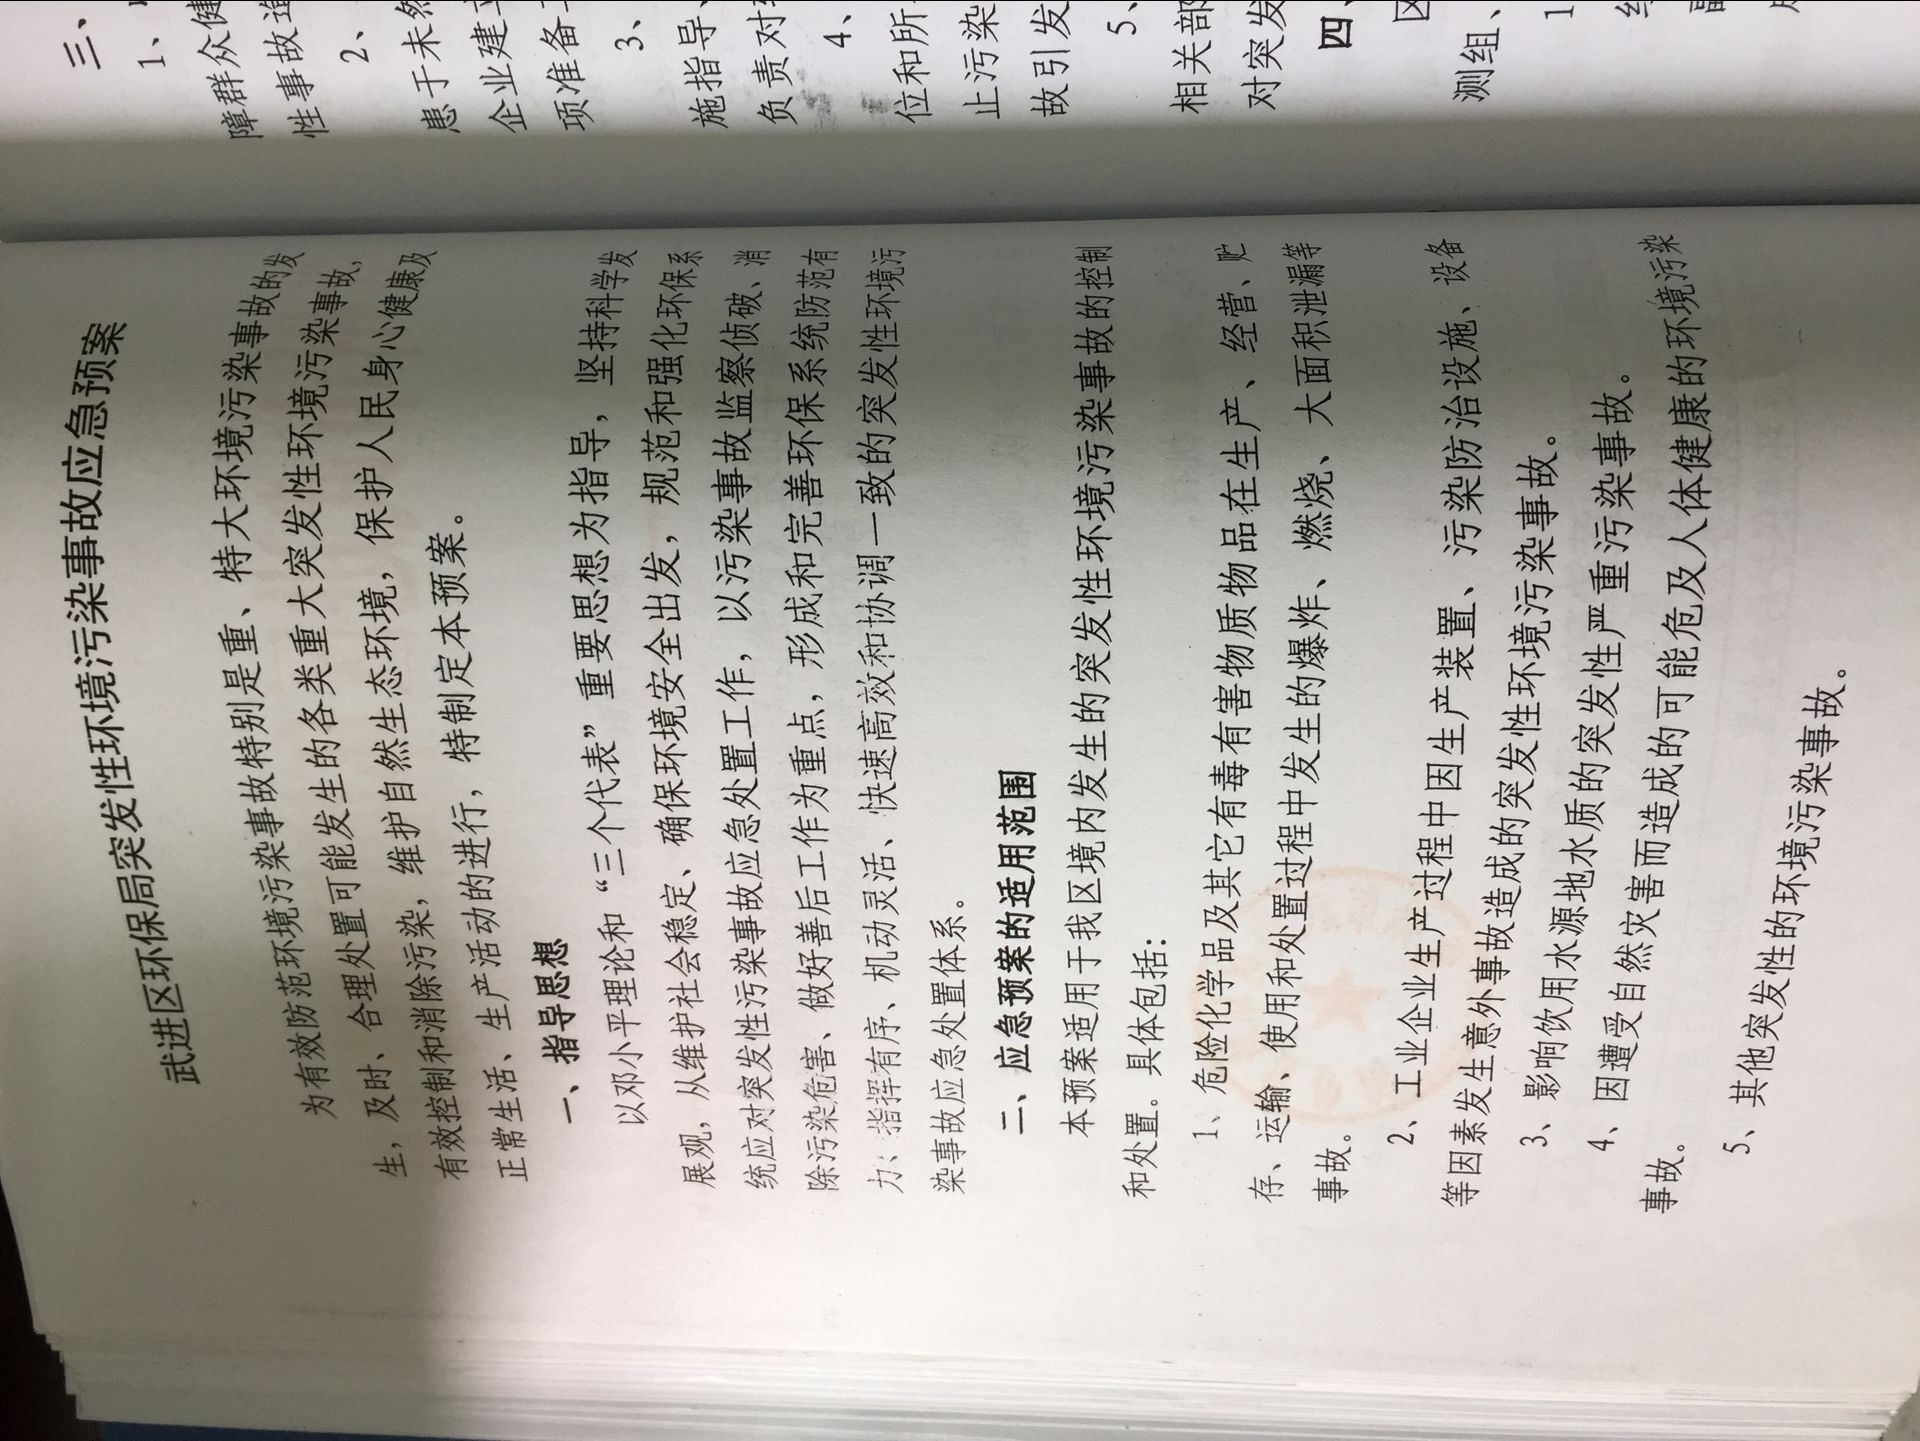 武进区环保局突发性环境污染事故应急预案
为有效防范环境污染事故特别是重、特大环境污染事故的发
生，及时、合理处置可能发生的各类重大突发性环境污染事故，
有效控制和消除污染，维护自然生态环境，保护人民身心健康及
正常生活、生产活动的进行，特制定本预案。
一、指导思想
以邓小平理论和“三个代表”重要思想为指导，坚持科学发
展观，从维护社会稳定、确保环境安全出发，规范和强化环保系
统应对突发性污染事故应急处置工作，以污染事故监察侦破、消
除污染危害、做好善后工作为重点，形成和完善环保系统防范有
力、指挥有序、机动灵活、快速高效和协调一致的突发性环境污
染事故应急处置体系。
二、应急预案的适用范围
本预案适用于我区境内发生的突发性环境污染事故的控制
和处置。具体包括：
1、危险化学品及其它有毒有害物质物品在生产、经营、贮
存、运输、使用和处置过程中发生的爆炸、燃烧、大面积泄漏等
事故。
2、工业企业生产过程中因生产装置、污染防治设施、设备
等因素发生意外事故造成的突发性环境污染事故。
3、影响饮用水源地水质的突发性严重污染事故。
4、因遭受自然灾害而造成的可能危及人体健康的环境污染
事故。
5、其他突发性的环境污染事故。
三、
1、
障群众健
性事故造
2、
患于未然
企业建立
项准备
3、
施指导、
负责对
4、
位和所
止污染
故引发
5、
相关部
对突发
四、
区
测组、
1